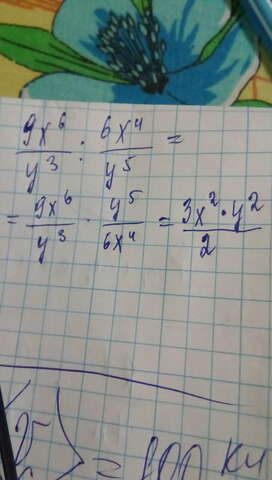 9x⁶/y³ : 6x⁴/y⁵ =
= 9x⁶/y³ · y⁵/6x⁴ = 3x²·y²/2
= 100 кл